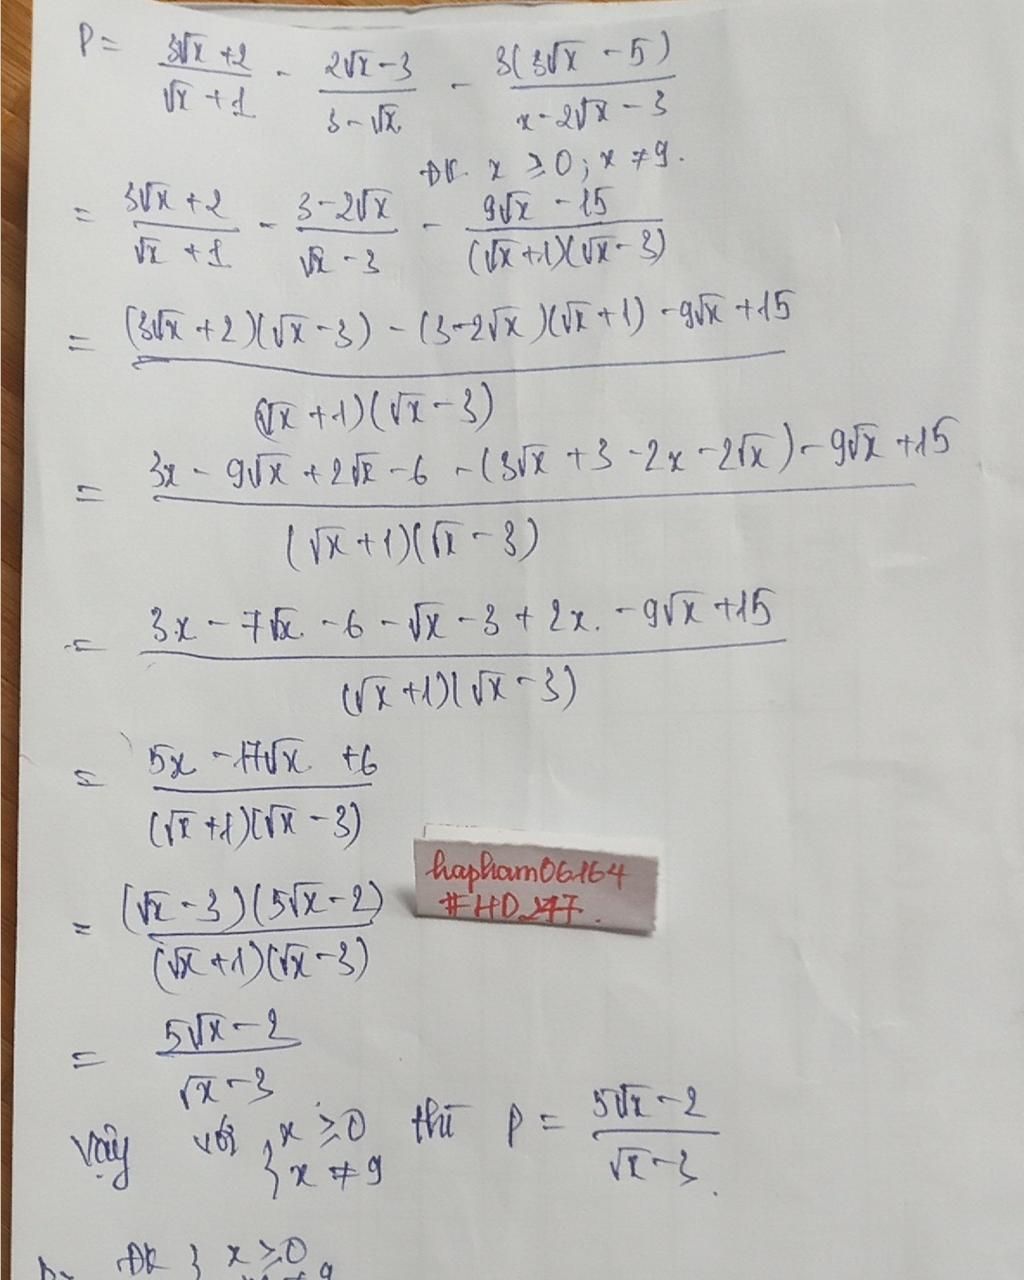 P = \frac{3\sqrt{x}+2}{\sqrt{x}+1} - \frac{2\sqrt{x}-3}{3-\sqrt{x}} - \frac{3(3\sqrt{x}-5)}{x-2\sqrt{x}-3}
ĐK. x ≥ 0; x ≠ 9.
= \frac{3\sqrt{x}+2}{\sqrt{x}+1} - \frac{3-2\sqrt{x}}{\sqrt{x}-3} - \frac{9\sqrt{x}-15}{(\sqrt{x}+1)(\sqrt{x}-3)}
= \frac{(3\sqrt{x}+2)(\sqrt{x}-3) - (3-2\sqrt{x})(\sqrt{x}+1) - 9\sqrt{x}+15}{(\sqrt{x}+1)(\sqrt{x}-3)}
= \frac{3x-9\sqrt{x}+2\sqrt{x}-6-(3\sqrt{x}+3-2x-2\sqrt{x})-9\sqrt{x}+15}{(\sqrt{x}+1)(\sqrt{x}-3)}
= \frac{3x-7\sqrt{x}-6-\sqrt{x}-3+2x-9\sqrt{x}+15}{(\sqrt{x}+1)(\sqrt{x}-3)}
= \frac{5x-17\sqrt{x}+6}{(\sqrt{x}+1)(\sqrt{x}-3)}
hapham06164
#HD247.
= \frac{(\sqrt{x}-3)(5\sqrt{x}-2)}{(\sqrt{x}+1)(\sqrt{x}-3)}
= \frac{5\sqrt{x}-2}{\sqrt{x}-3}
Vậy với { x ≥ 0 x ≠ 9 thì P = \frac{5\sqrt{x}-2}{\sqrt{x}-3}.
ĐK { x ≥ 0